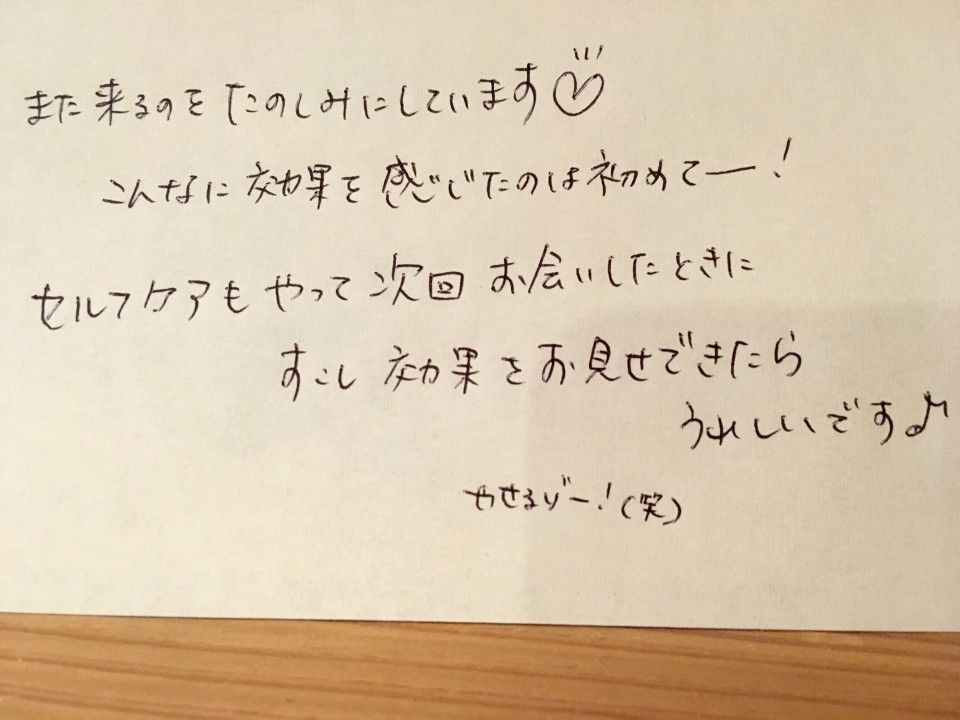 また来るのをたのしみにしています♡
こんなに効果を感じたのは初めてー!
セルフケアもやって次回お会いしたときに
すこし効果をお見せできたら
うれしいです♪
やせるゾー!(笑)